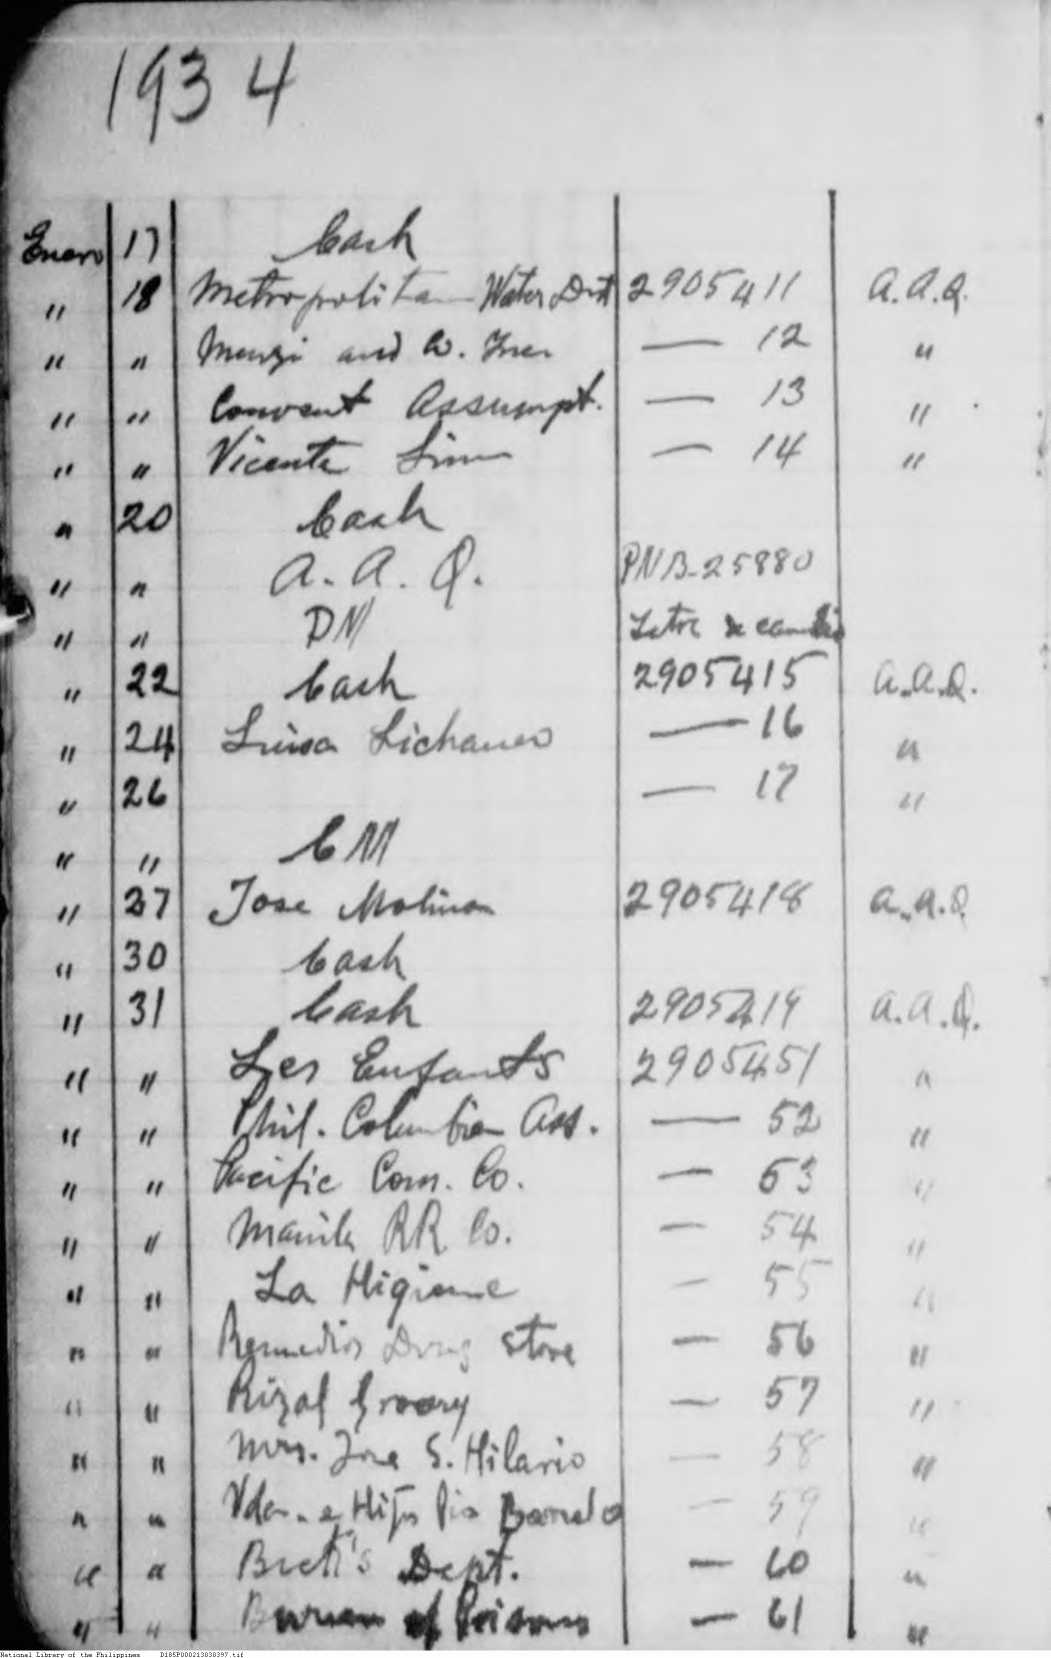 1934
Enero 17 Cash
" 18 Metropolitan Water Dist 2905411 A.A.Q.
" " and Co. — 12 "
" " Convent Assumpt. — 13 "
" " Vicente Lim — 14 "
" 20 Cash
" " A.A.Q. PNB-25880
" " PN Letra de cambio
" 22 Cash 2905415 A.A.Q.
" 24 Luisa Lichauco — 16 "
" 26 — 17 "
" " CM
" 27 Jose Molina 2905418 A.A.Q
" 30 Cash
" 31 Cash 2905419 A.A.Q.
" " Les Enfants 2905451 "
" " Phil. Columbian Ass. — 52 "
" " Pacific Com. Co. — 53 "
" " Manila RR Co. — 54 "
" " La Higiene — 55 "
" " Remedios Drug Store — 56 "
" " Rizal Grocery — 57 "
" " Mrs. Jose S. Hilario — 58 "
" " Vda. e Hijos Pio Barreto — 59 "
" " Dept. — 60 "
" " Bureau of Prisons — 61 "
National Library of the Philippines D185P000213838397.tif